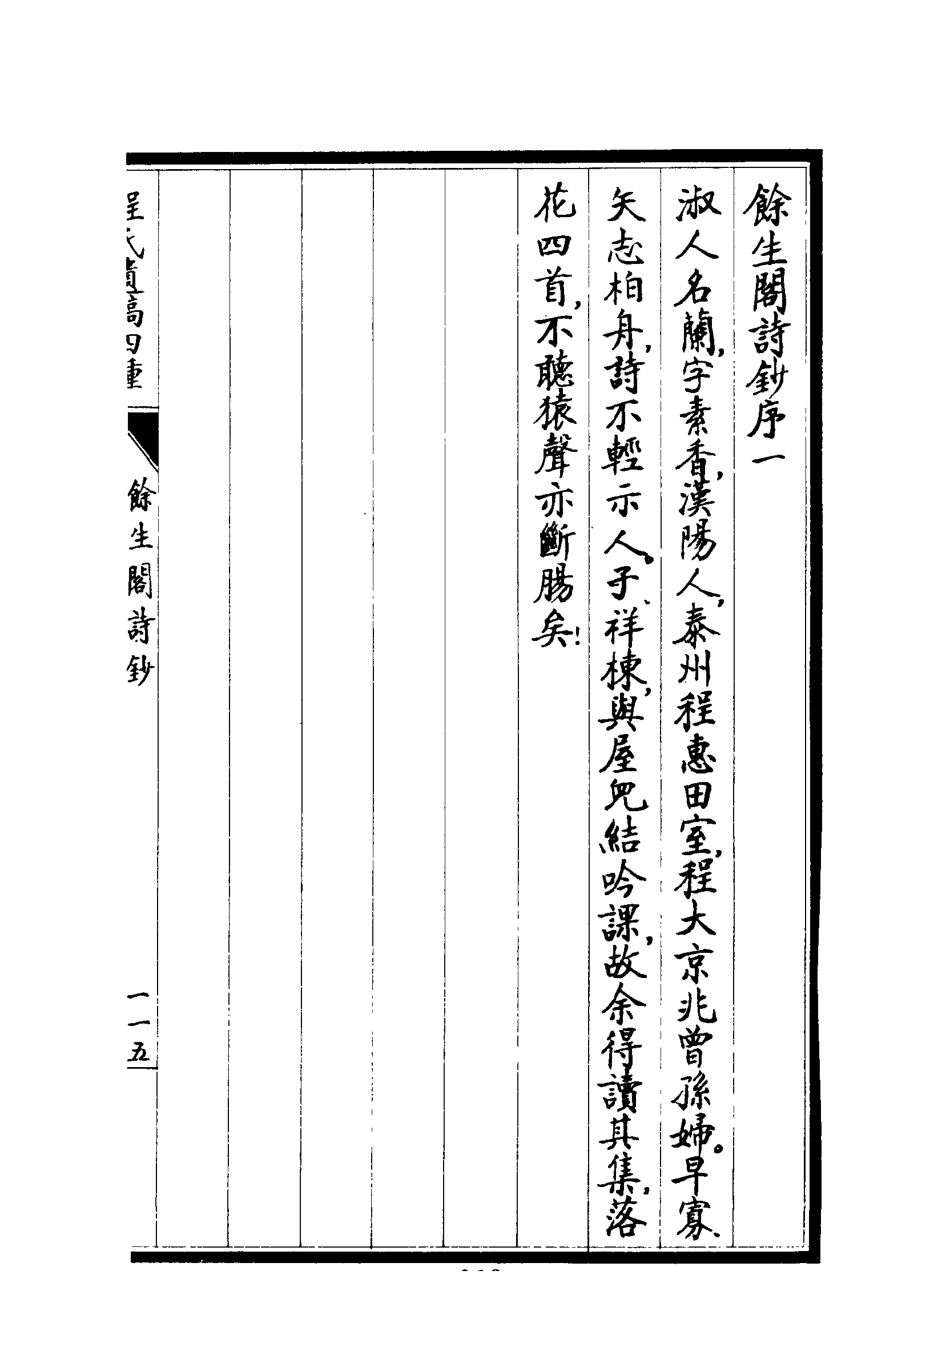 餘生閣詩鈔序一
淑人名蘭，字素香，漢陽人，泰州程惠田室，程大京兆曾孫婦。早寡、
矢志柏舟，詩不輕示人。子、祥棟，與屋兒結吟課，故余得讀其集，落
花四首，不聽猿聲亦斷腸矣！
程氏遺稿四種
餘生閣詩鈔
一一五